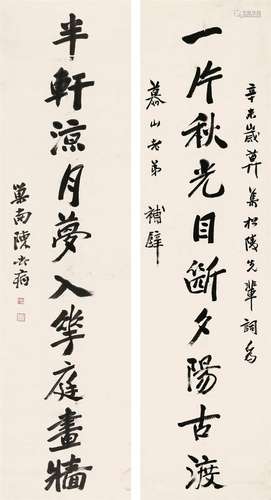 辛未歲莫集松陵先輩詞為
一片秋光目斷夕陽古渡
慕山老弟 補壁
半軒涼月夢入華庭畫牆
巢南陳去病